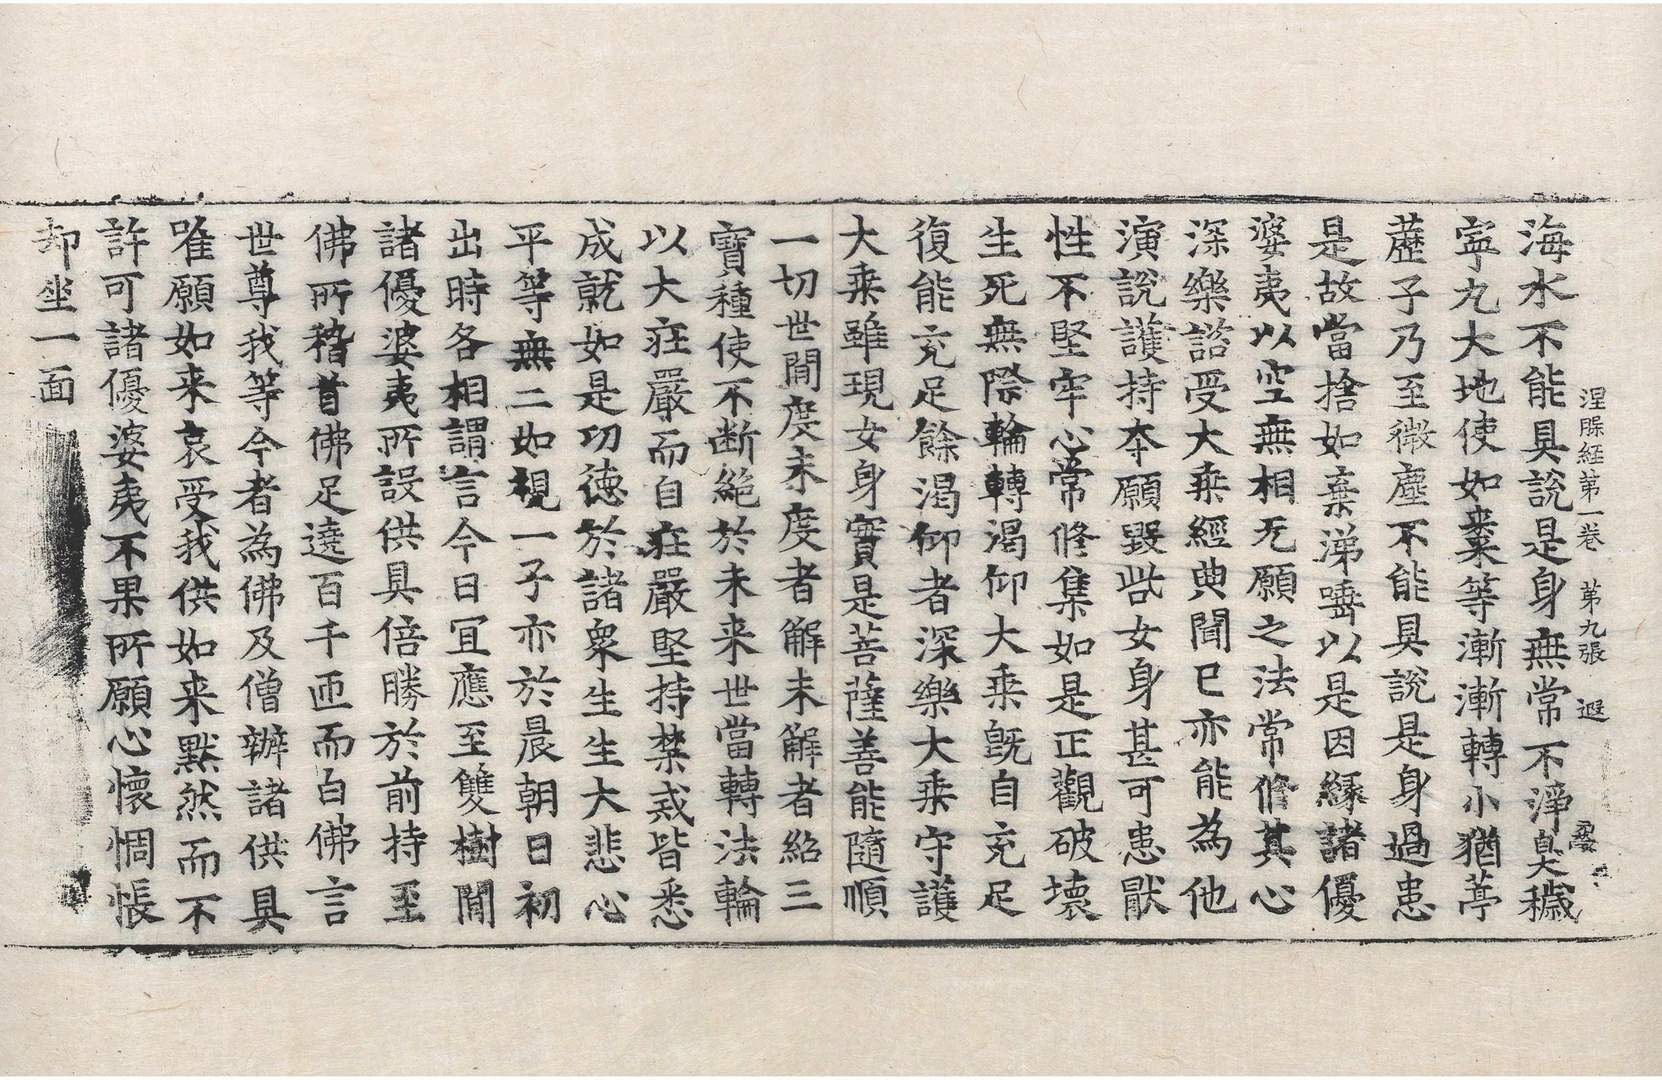 涅脎経第一卷 第九張 遐
海水不能具說是身無常不淨臭穢
寧九大地使如棗等漸漸轉小猶葶
藶子乃至微塵不能具說是身過患
是故當捨如棄涕唾以是因緣諸優
婆夷以空無相无願之法常修其心
深樂諮受大乘經典聞已亦能為他
演說護持夲願毀呰女身甚可患猒
性不堅牢心常修集如是正觀破壞
生死無際輪轉渴仰大乘旣自充足
復能充足餘渴仰者深樂大乘守護
大乘雖現女身實是菩薩善能隨順
一切世間度未度者解未解者紹三
寶種使不断絕於未来世當轉法輪
以大莊嚴而自莊嚴堅持禁戒皆悉
成就如是功德於諸衆生生大悲心
平等無二如視一子亦於晨朝日初
出時各相謂言今日冝應至雙樹間
諸優婆夷所設供具倍勝於前持至
佛所稽首佛足遶百千匝而白佛言
世尊我等今者為佛及僧辦諸供具
唯願如来哀受我供如来默然而不
許可諸優婆夷不果所願心懷惆悵
却坐一面